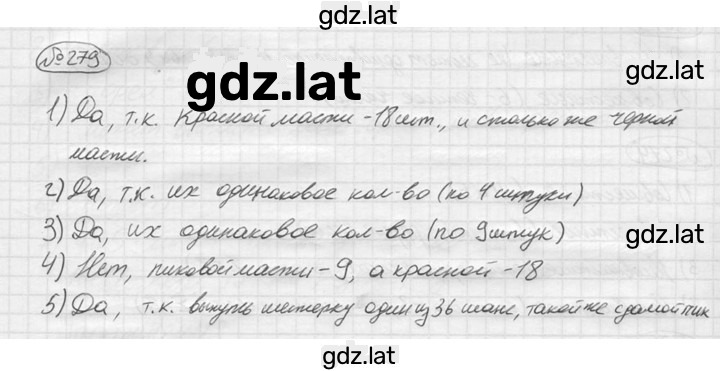 gdz.lat
№279
gdz.lat
1) Да, т.к. красной масти - 18 шт., и столько же черной
масти.
2) Да, т.к. их одинаковое кол-во (по 4 штуки)
gdz.lat
3) Да, их одинаковое кол-во (по 9 штук)
4) Нет, пиковой масти - 9, а красной - 18
5) Да, т.к. вынуть шестерку один из 36 шанс, такой же с дамой пик
gdz.lat